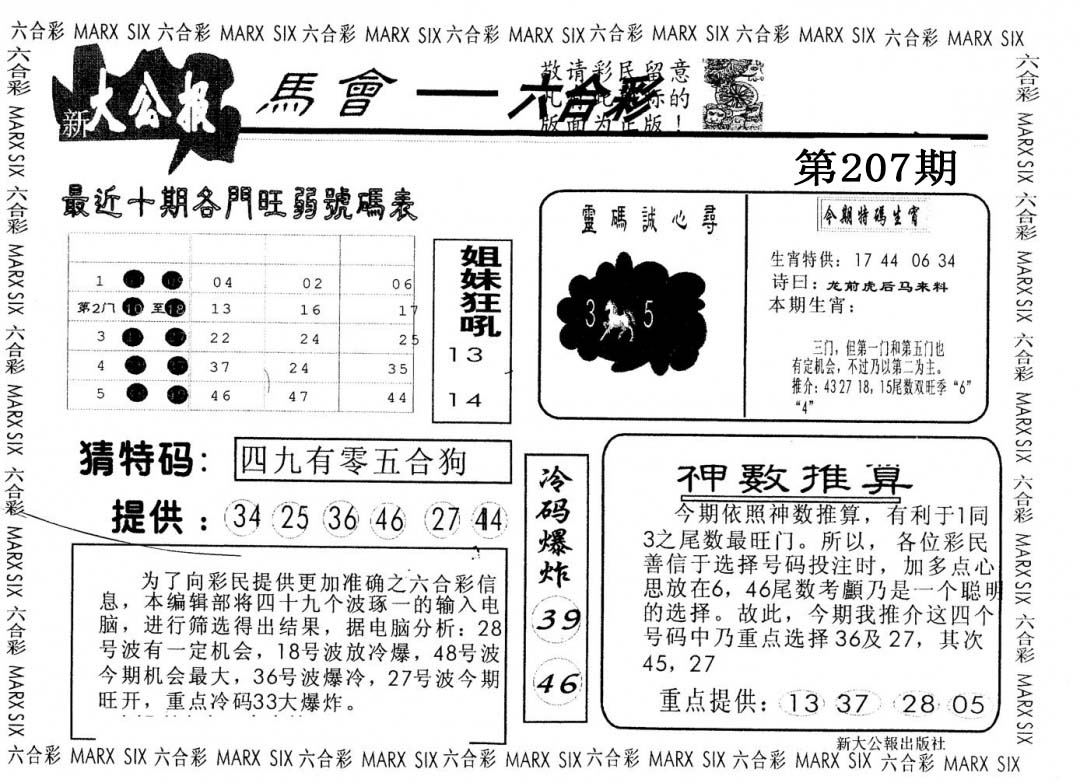 六合彩 MARX SIX 六合彩 MARX SIX 六合彩 MARX SIX 六合彩 MARX SIX 六合彩 MARX SIX 六合彩 MARX SIX 六合彩 MARX SIX
六合彩 MARX SIX 六合彩 MARX SIX 六合彩 MARX SIX 六合彩 MARX SIX 六合彩 MARX SIX
六合彩 MARX SIX 六合彩 MARX SIX 六合彩 MARX SIX 六合彩 MARX SIX 六合彩 MARX SIX
新大公报
馬會一六合彩
敬请彩民留意
的
版面为正版!
第207期
最近十期各門旺弱號碼表
1 04 02 06
第2门 10 至 18 13 16 17
3 22 24 25
4 37 24 35
5 46 47 44
姐妹狂吼
13
14
靈碼誠心尋
3 5
今期特碼生肖
生宵特供: 17 44 06 34
诗曰: 龙前虎后马来料
本期生宵:
三门, 但第一门和第五门也
有定机会, 不过乃以第二为主。
推介: 43 27 18, 15尾数双旺季“6”
“4”
猜特码: 四九有零五合狗
提供: 34 25 36 46 27 44
为了向彩民提供更加准确之六合彩信
息, 本编辑部将四十九个波琢一的输入电
脑, 进行筛选得出结果, 据电脑分析: 28
号波有一定机会, 18号波放冷爆, 48号波
今期机会最大, 36号波爆冷, 27号波今期
旺开, 重点冷码33大爆炸。
冷码爆炸
39
46
神数推算
今期依照神数推算, 有利于1同
3之尾数最旺门。所以, 各位彩民
善信于选择号码投注时, 加多点心
思放在6, 46尾数考顱乃是一个聪明
的选择。故此, 今期我推介这四个
号码中乃重点选择36及27, 其次
45, 27
重点提供: 13 37 28 05
新大公報出版社
六合彩 MARX SIX 六合彩 MARX SIX 六合彩 MARX SIX 六合彩 MARX SIX 六合彩 MARX SIX 六合彩 MARX SIX 六合彩 MARX SIX